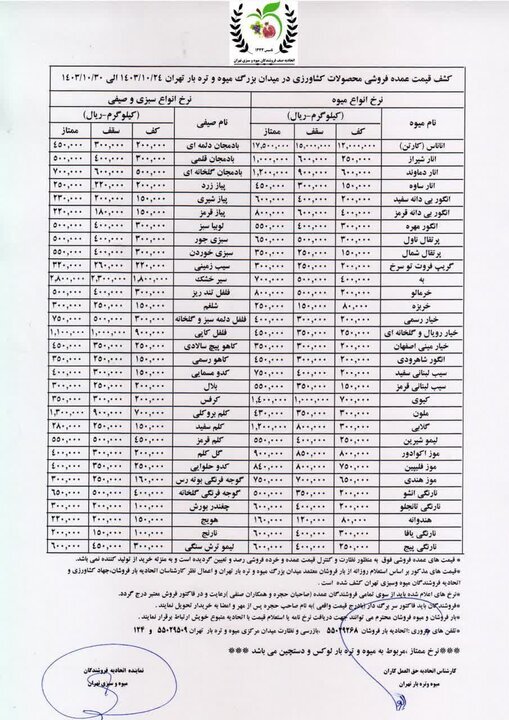 تاسیس ۱۳۲۲
اتحادیه صنف فروشندگان میوه و سبزی تهران
کشف قیمت عمده فروشی محصولات کشاورزی در میدان بزرگ میوه و تره بار تهران ۱۴۰۳/۱۰/۲۴ الی ۱۴۰۳/۱۰/۳۰
نرخ انواع میوه نرخ انواع سبزی و صیفی
نام میوه (کیلوگرم-ریال) نام صیفی (کیلوگرم-ریال)
کف سقف ممتاز کف سقف ممتاز
آناناس (کارتن) ۱۲,۰۰۰,۰۰۰ ۱۵,۰۰۰,۰۰۰ ۱۷,۵۰۰,۰۰۰ بادمجان دلمه ای ۲۰۰,۰۰۰ ۳۰۰,۰۰۰ ۴۵۰,۰۰۰
انار شیراز ۲۵۰,۰۰۰ ۶۰۰,۰۰۰ ۱,۰۰۰,۰۰۰ بادمجان قلمی ۳۰۰,۰۰۰ ۴۰۰,۰۰۰ ۵۰۰,۰۰۰
انار دماوند ۶۰۰,۰۰۰ ۹۰۰,۰۰۰ ۱,۲۰۰,۰۰۰ بادمجان گلخانه ای ۵۰۰,۰۰۰ ۶۰۰,۰۰۰ ۷۰۰,۰۰۰
انار ساوه ۱۵۰,۰۰۰ ۳۰۰,۰۰۰ ۴۵۰,۰۰۰ پیاز زرد ۲۰۰,۰۰۰ ۲۲۰,۰۰۰ ۲۵۰,۰۰۰
انگور بی دانه سفید ۲۰۰,۰۰۰ ۴۰۰,۰۰۰ ۶۰۰,۰۰۰ پیاز شیری ۱۵۰,۰۰۰ ۲۰۰,۰۰۰ ۲۳۰,۰۰۰
انگور بی دانه قرمز ۴۰۰,۰۰۰ ۶۰۰,۰۰۰ ۸۰۰,۰۰۰ پیاز قرمز ۱۵۰,۰۰۰ ۱۸۰,۰۰۰ ۲۲۰,۰۰۰
انگور مهره ۳۰۰,۰۰۰ ۴۰۰,۰۰۰ ۵۵۰,۰۰۰ لوبیا سبز ۳۰۰,۰۰۰ ۴۰۰,۰۰۰ ۵۵۰,۰۰۰
پرتقال ناول ۳۰۰,۰۰۰ ۵۰۰,۰۰۰ ۶۵۰,۰۰۰ سبزی جور ۳۰۰,۰۰۰ ۴۰۰,۰۰۰ ۵۰۰,۰۰۰
پرتقال شمال ۱۵۰,۰۰۰ ۲۵۰,۰۰۰ ۳۵۰,۰۰۰ سبزی خوردن ۳۰۰,۰۰۰ ۴۰۰,۰۰۰ ۵۵۰,۰۰۰
گریپ فروت تو سرخ ۲۰۰,۰۰۰ ۲۵۰,۰۰۰ ۳۰۰,۰۰۰ سیب زمینی ۲۲۰,۰۰۰ ۲۶۰,۰۰۰ ۳۲۰,۰۰۰
به ۴۰۰,۰۰۰ ۵۰۰,۰۰۰ ۷۰۰,۰۰۰ سیر خشک ۱,۸۰۰,۰۰۰ ۲,۳۰۰,۰۰۰ ۲,۸۰۰,۰۰۰
خرمالو ۲۰۰,۰۰۰ ۵۰۰,۰۰۰ ۸۰۰,۰۰۰ فلفل تند ریز ۳۰۰,۰۰۰ ۴۰۰,۰۰۰ ۵۰۰,۰۰۰
خربزه ۸۰,۰۰۰ ۱۵۰,۰۰۰ ۲۵۰,۰۰۰ شلغم ۱۵۰,۰۰۰ ۲۵۰,۰۰۰ ۳۰۰,۰۰۰
خیار رسمی ۲۰۰,۰۰۰ ۳۰۰,۰۰۰ ۴۰۰,۰۰۰ فلفل دلمه سبز و گلخانه ۳۰۰,۰۰۰ ۵۰۰,۰۰۰ ۷۵۰,۰۰۰
خیار رویال و گلخانه ای ۲۵۰,۰۰۰ ۳۵۰,۰۰۰ ۴۵۰,۰۰۰ فلفل کاپی ۹۰۰,۰۰۰ ۱,۰۰۰,۰۰۰ ۱,۱۰۰,۰۰۰
خیار مینی اصفهان ۲۰۰,۰۰۰ ۳۰۰,۰۰۰ ۴۰۰,۰۰۰ کاهو پیچ سالادی ۲۵۰,۰۰۰ ۳۵۰,۰۰۰ ۴۵۰,۰۰۰
انگور شاهرودی ۲۵۰,۰۰۰ ۳۰۰,۰۰۰ ۴۰۰,۰۰۰ کاهو رسمی ۱۵۰,۰۰۰ ۲۵۰,۰۰۰ ۳۵۰,۰۰۰
سیب لبنانی سفید ۲۰۰,۰۰۰ ۴۰۰,۰۰۰ ۷۵۰,۰۰۰ کدو مسمایی ۲۰۰,۰۰۰ ۳۰۰,۰۰۰ ۴۰۰,۰۰۰
سیب لبنانی قرمز ۱۵۰,۰۰۰ ۳۵۰,۰۰۰ ۵۵۰,۰۰۰ بلال ۲۰۰,۰۰۰ ۲۵۰,۰۰۰ ۳۰۰,۰۰۰
کیوی ۷۰۰,۰۰۰ ۱,۰۰۰,۰۰۰ ۱,۴۰۰,۰۰۰ کرفس ۲۰۰,۰۰۰ ۳۰۰,۰۰۰ ۳۵۰,۰۰۰
ملون ۲۰۰,۰۰۰ ۳۵۰,۰۰۰ ۴۳۰,۰۰۰ کلم بروکلی ۷۰۰,۰۰۰ ۹۰۰,۰۰۰ ۱,۳۰۰,۰۰۰
گلابی ۳۰۰,۰۰۰ ۸۰۰,۰۰۰ ۱,۲۰۰,۰۰۰ کلم سفید ۱۵۰,۰۰۰ ۲۵۰,۰۰۰ ۲۸۰,۰۰۰
لیمو شیرین ۲۵۰,۰۰۰ ۴۰۰,۰۰۰ ۵۵۰,۰۰۰ کلم قرمز ۴۵۰,۰۰۰ ۵۰۰,۰۰۰ ۵۵۰,۰۰۰
موز اکوادور ۸۰۰,۰۰۰ ۸۵۰,۰۰۰ ۹۰۰,۰۰۰ گل کلم ۲۰۰,۰۰۰ ۳۰۰,۰۰۰ ۴۰۰,۰۰۰
موز فلیپین ۷۵۰,۰۰۰ ۸۰۰,۰۰۰ ۸۴۰,۰۰۰ کدو حلوایی ۲۵۰,۰۰۰ ۳۵۰,۰۰۰ ۴۵۰,۰۰۰
موز هندی ۶۵۰,۰۰۰ ۷۰۰,۰۰۰ ۷۵۰,۰۰۰ گوجه فرنگی بوته رس ۱۶۰,۰۰۰ ۲۵۰,۰۰۰ ۳۰۰,۰۰۰
نارنگی انشو ۲۵۰,۰۰۰ ۳۰۰,۰۰۰ ۵۰۰,۰۰۰ گوجه فرنگی گلخانه ۴۰۰,۰۰۰ ۵۰۰,۰۰۰ ۶۵۰,۰۰۰
نارنگی تانجلو ۲۰۰,۰۰۰ ۳۰۰,۰۰۰ ۴۰۰,۰۰۰ چغندر پورش ۱۰۰,۰۰۰ ۲۰۰,۰۰۰ ۳۰۰,۰۰۰
هندوانه ۸۰,۰۰۰ ۱۲۰,۰۰۰ ۱۶۰,۰۰۰ هویج ۱۵۰,۰۰۰ ۲۰۰,۰۰۰ ۲۲۰,۰۰۰
نارنگی یافا ۲۰۰,۰۰۰ ۳۰۰,۰۰۰ ۴۰۰,۰۰۰ نارنج ۱۵۰,۰۰۰ ۲۰۰,۰۰۰ ۲۲۰,۰۰۰
نارنگی پیج ۲۵۰,۰۰۰ ۴۰۰,۰۰۰ ۶۰۰,۰۰۰ لیمو ترش سنگی ۳۰۰,۰۰۰ ۴۵۰,۰۰۰ ۶۰۰,۰۰۰
* قیمت های عمده فروشی فوق به منظور نظارت و کنترل قیمت عمده و خرده فروشی رصد و تعیین گردیده است و به منزله خرید از تولید کننده نمی باشد.
* قیمت های مذکور بر اساس استعلام روزانه از بار فروشان معتمد میدان بزرگ میوه و تره بار تهران و اعمال نظر کارشناسان اتحادیه بار فروشان،جهاد کشاورزی و اتحادیه فروشندگان میوه وسبزی تهران کشف شده است .
*نرخ های اعلام شده باید از سوی تمامی فروشندگان عمده (صاحبان حجره و همکاران صنفی )رعایت و در فاکتور فروش معتبر درج گردد.
*فروشندگان باید فاکتور سر برگ دار (بادرج قیمت واقعی )به نام صاحب حجره پس از مهر و امضا به خریدار تحویل نمایند.
*بار فروشان و میوه فروشان محترم می توانند جهت دریافت نرخ نامه یا استعلام قیمت با اتحادیه متبوع خویش ارتباط برقرار نمایند .
*تلفن های ضروری :اتحادیه بار فروشان ۵۵۰۲۹۲۶۸ ،بازرسی و نظارت میدان مرکزی میوه و تره بار تهران ۵۵۰۲۹۵۰۹ و ۱۲۴
***نرخ ممتاز ،مربوط به میوه و تره بار لوکس و دستچین می باشد ***
کارشناس اتحادیه حق العمل کاران نماینده اتحادیه فروشندگان
میوه وتره بار تهران میوه و سبزی تهران